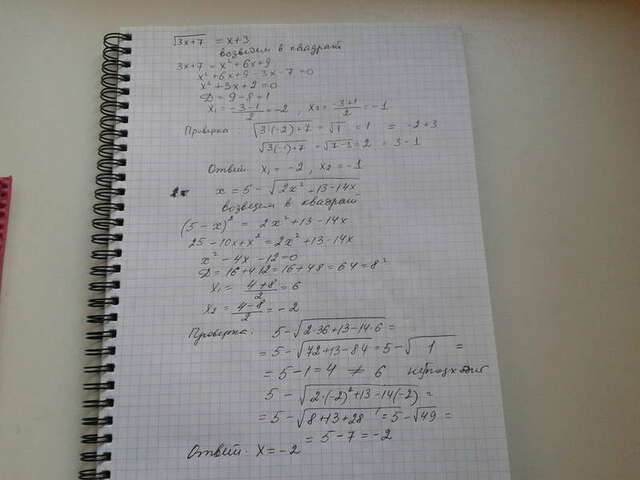 √3x+7 = x+3
возведем в квадрат
3x+7 = x²+6x+9
x²+6x+9-3x-7=0
x²+3x+2=0
D=9-8=1
x₁=(-3-1)/2=-2, x₂=(-3+1)/2=-1
Проверка: √3·(-2)+7 = √1 = 1 = -2+3
√3(-1)+7 = √7-3=2 = 3-1
Ответ. x₁=-2, x₂=-1
x = 5-√2x²+13-14x
возведем в квадрат
(5-x)² = 2x²+13-14x
25-10x+x²=2x²+13-14x
x²-4x-12=0
D=16+4·12=16+48=64=8²
x₁=(4+8)/2=6
x₂=(4-8)/2=-2
Проверка: 5-√2·36+13-14·6 =
=5-√72+13-84=5-√1 =
=5-1=4 ≠ 6 не подходит
5-√2·(-2)²+13-14(-2)=
=5-√8+13+28=5-√49=
=5-7=-2
Ответ. x=-2